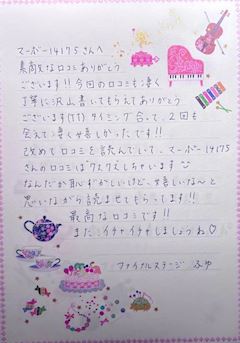 マーボー14175さんへ
素敵な口コミありがとう
ございます!!今回の口コミも凄く
丁寧に沢山書いてもらえてありがとう
ございます(TT) タイミング合って、2回も
会えて凄く嬉しかったです!!
改めて口コミを読んでいて、マーボー14175
さんの口コミはクスクスしちゃいます
なんだか恥ずかしいけど、嬉しいな〜と
思いながら読ませてもらってます!!
最高な口コミです!!
また、イチャイチャしましょうね♡
ファイナルステージ ふゆ